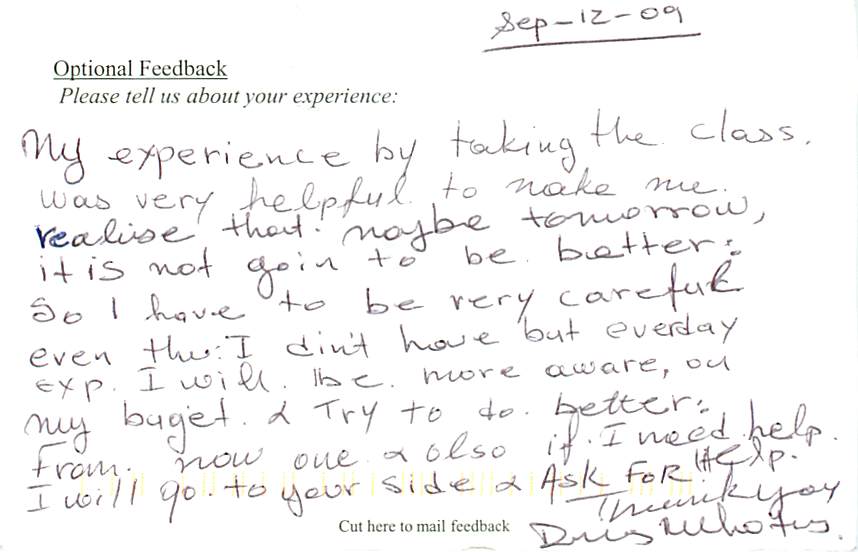 Sep-12-09
Optional Feedback
Please tell us about your experience:
My experience by taking the class.
was very helpful. to make me.
realise that. maybe tomorrow,
it is not goin to be. better:
So I have to be very careful
even thu: I din't have but everday
exp. I will. be. more aware, on
my buget. & Try to do. better:
From. now one & also if. I need help.
I will go. to your side & Ask FoR Help.
Thank you
Cut here to mail feedback